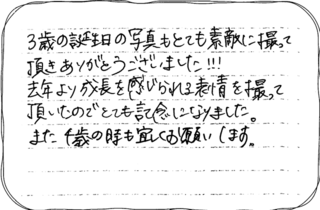 3歳の誕生日の写真もとても素敵に撮って
頂きありがとうございました!!!
去年より成長を感じられる表情を撮って
頂いたのでとても記念になりました。
また4歳の時も宜しくお願いします。